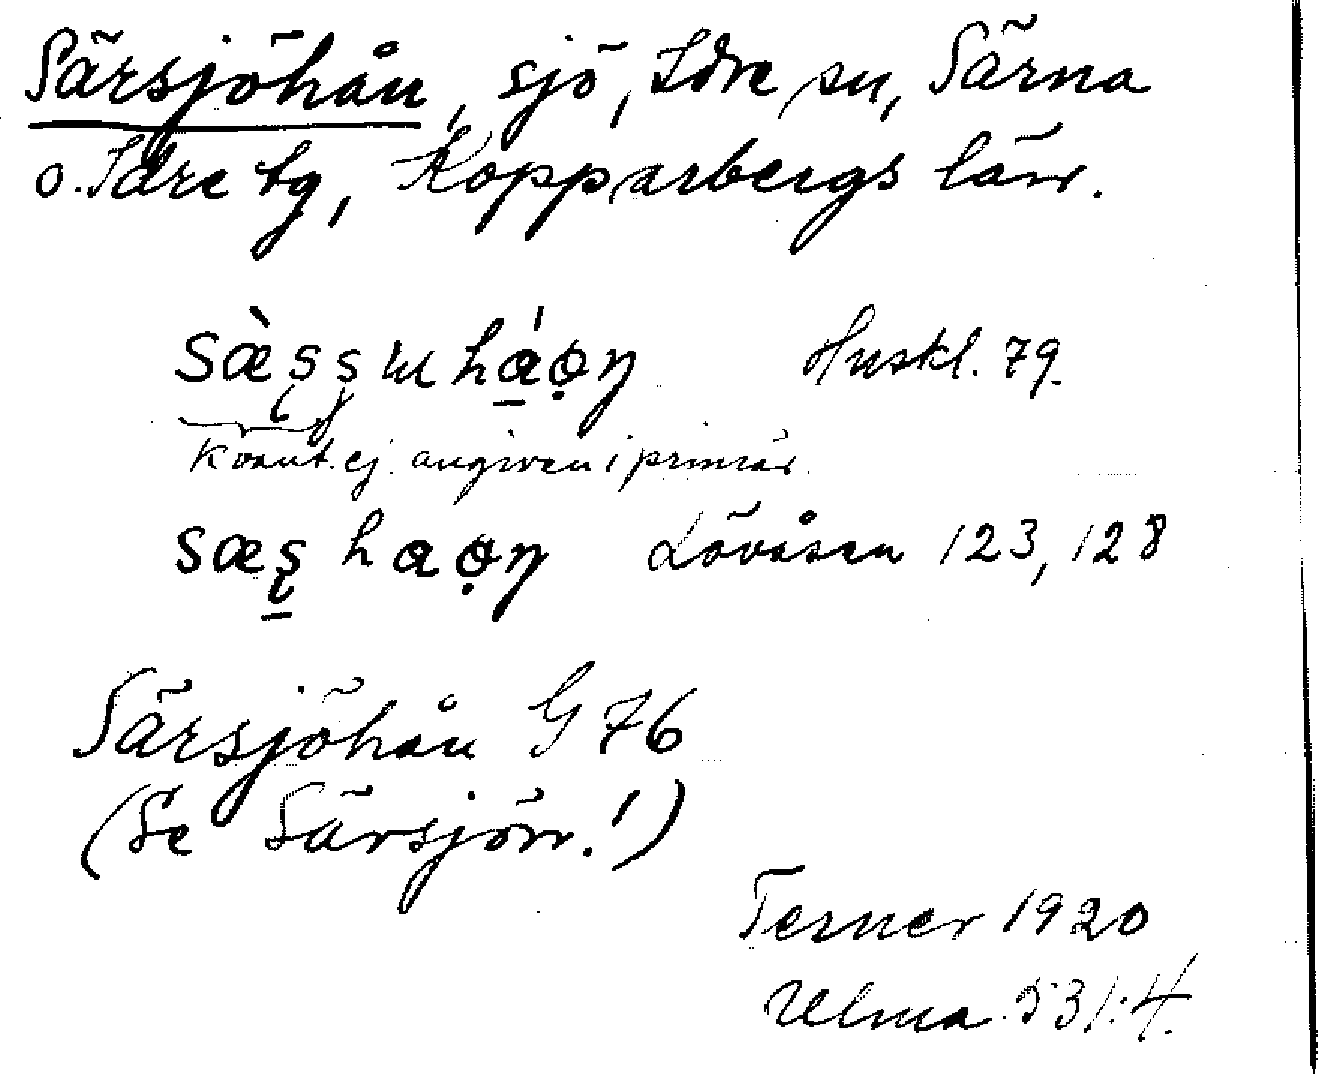 Särsjöhån, sjö, Idre sn, Särna
o. Idre tg, Kopparbergs län.
Huskl. 79.
Kvant. ej angiven i primär
Lövåsen 123, 128
Särsjöhån G 76
(Se Särsjön!)
Terner 1920
Ulma 531:4.